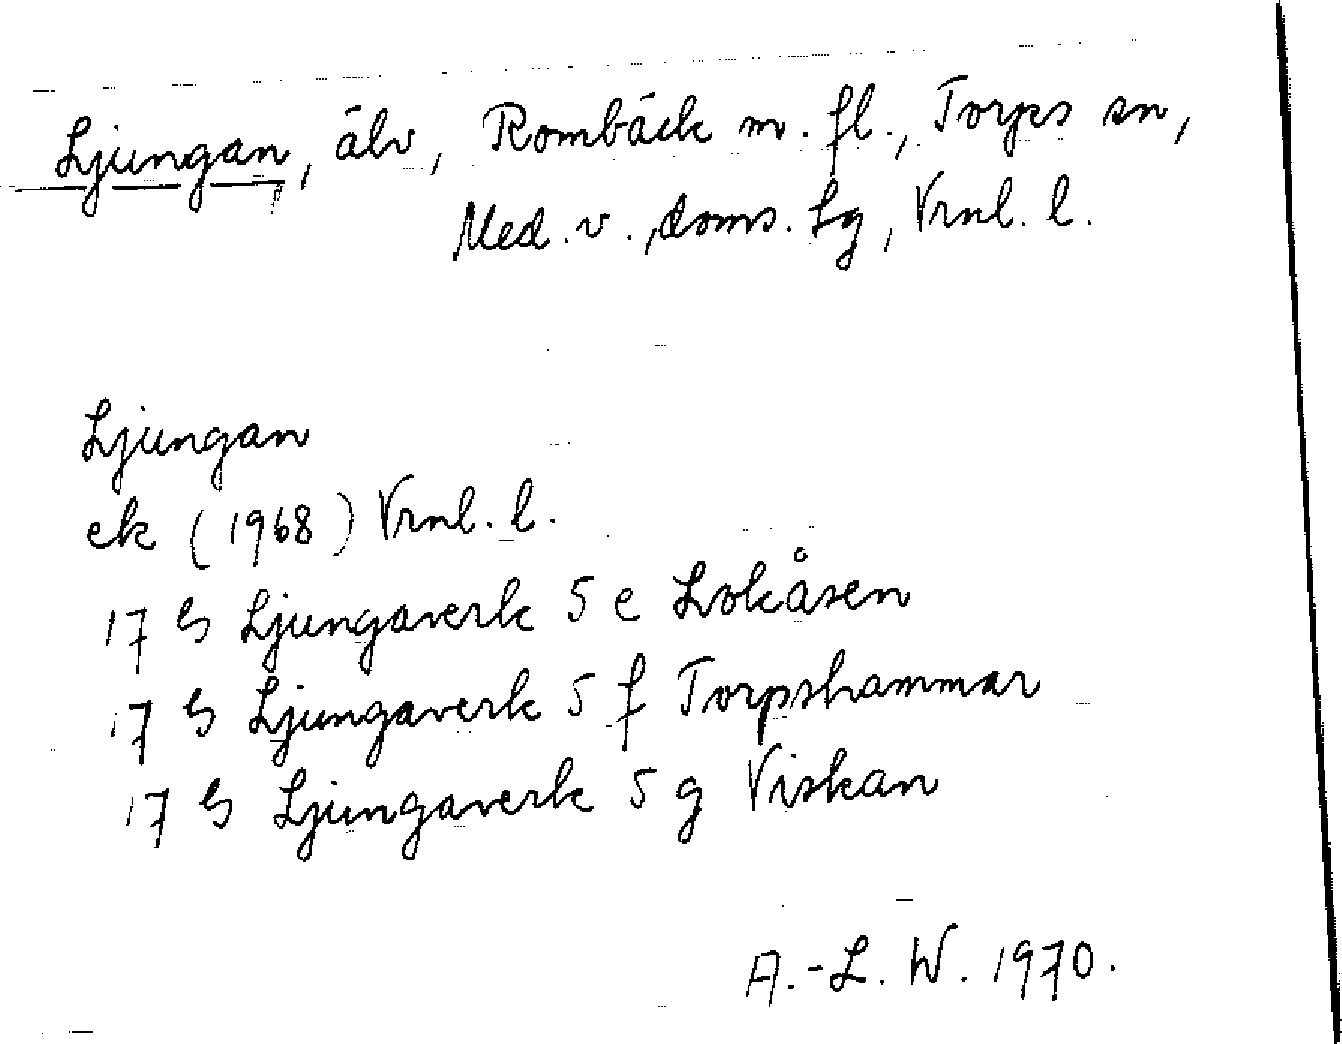 Ljungan, älv, Rombäck m. fl., Torps sn,
Med. v., doms. Lg, Vrnl. l.
Ljungan
ek (1968) Vrnl. l.
17 G Ljungaverk 5 e Lokåsen
17 G Ljungaverk 5 f Torpshammar
17 G Ljungaverk 5 g Viskan
A.-L. W. 1970.